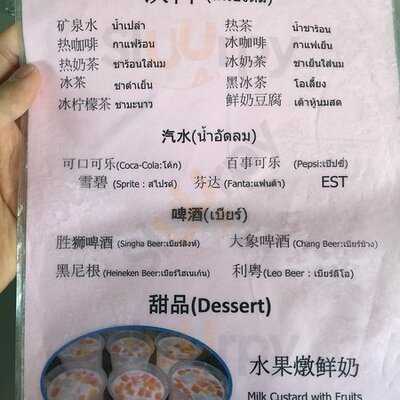 矿泉水 น้ำเปล่า 热茶 น้ำชาร้อน
热咖啡 กาแฟร้อน 冰咖啡 กาแฟเย็น
热奶茶 ชาร้อนใส่นม 冰奶茶 ชาเย็นใส่นม
冰茶 ชาดำเย็น 黑冰茶 โอเลี้ยง
冰柠檬茶 ชามะนาว 鲜奶豆腐 เต้าหู้นมสด
汽水(น้ำอัดลม)
可口可乐(Coca-Cola:โค้ก) 百事可乐 (Pepsi:เป๊ปซี่)
雪碧 (Sprite : สไปรด์) 芬达 (Fanta:แฟนต้า) EST
啤酒(เบียร์)
胜狮啤酒 (Singha Beer:เบียร์สิงห์) 大象啤酒 (Chang Beer:เบียร์ช้าง)
黑尼根 (Heineken Beer:เบียร์ไฮเนเก้น) 利粤 (Leo Beer : เบียร์ลีโอ)
甜品(Dessert)
水果燉鲜奶
Milk Custard with Fruits